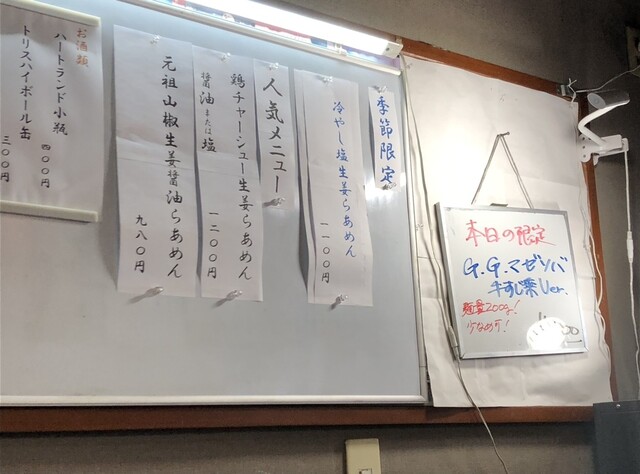 季節限定
冷やし塩生姜らあめん
一一〇〇円
人気メニュー
鶏チャーシュー生姜らあめん
醤油または塩
一二〇〇円
元祖山椒生姜醤油らあめん
九八〇円
お酒類
ハートランド小瓶
四〇〇円
トリスハイボール缶
三〇〇円
本日の限定
G.G.マゼソバ
牛すじ葉Ver.
麺量200g!
少なめ可!